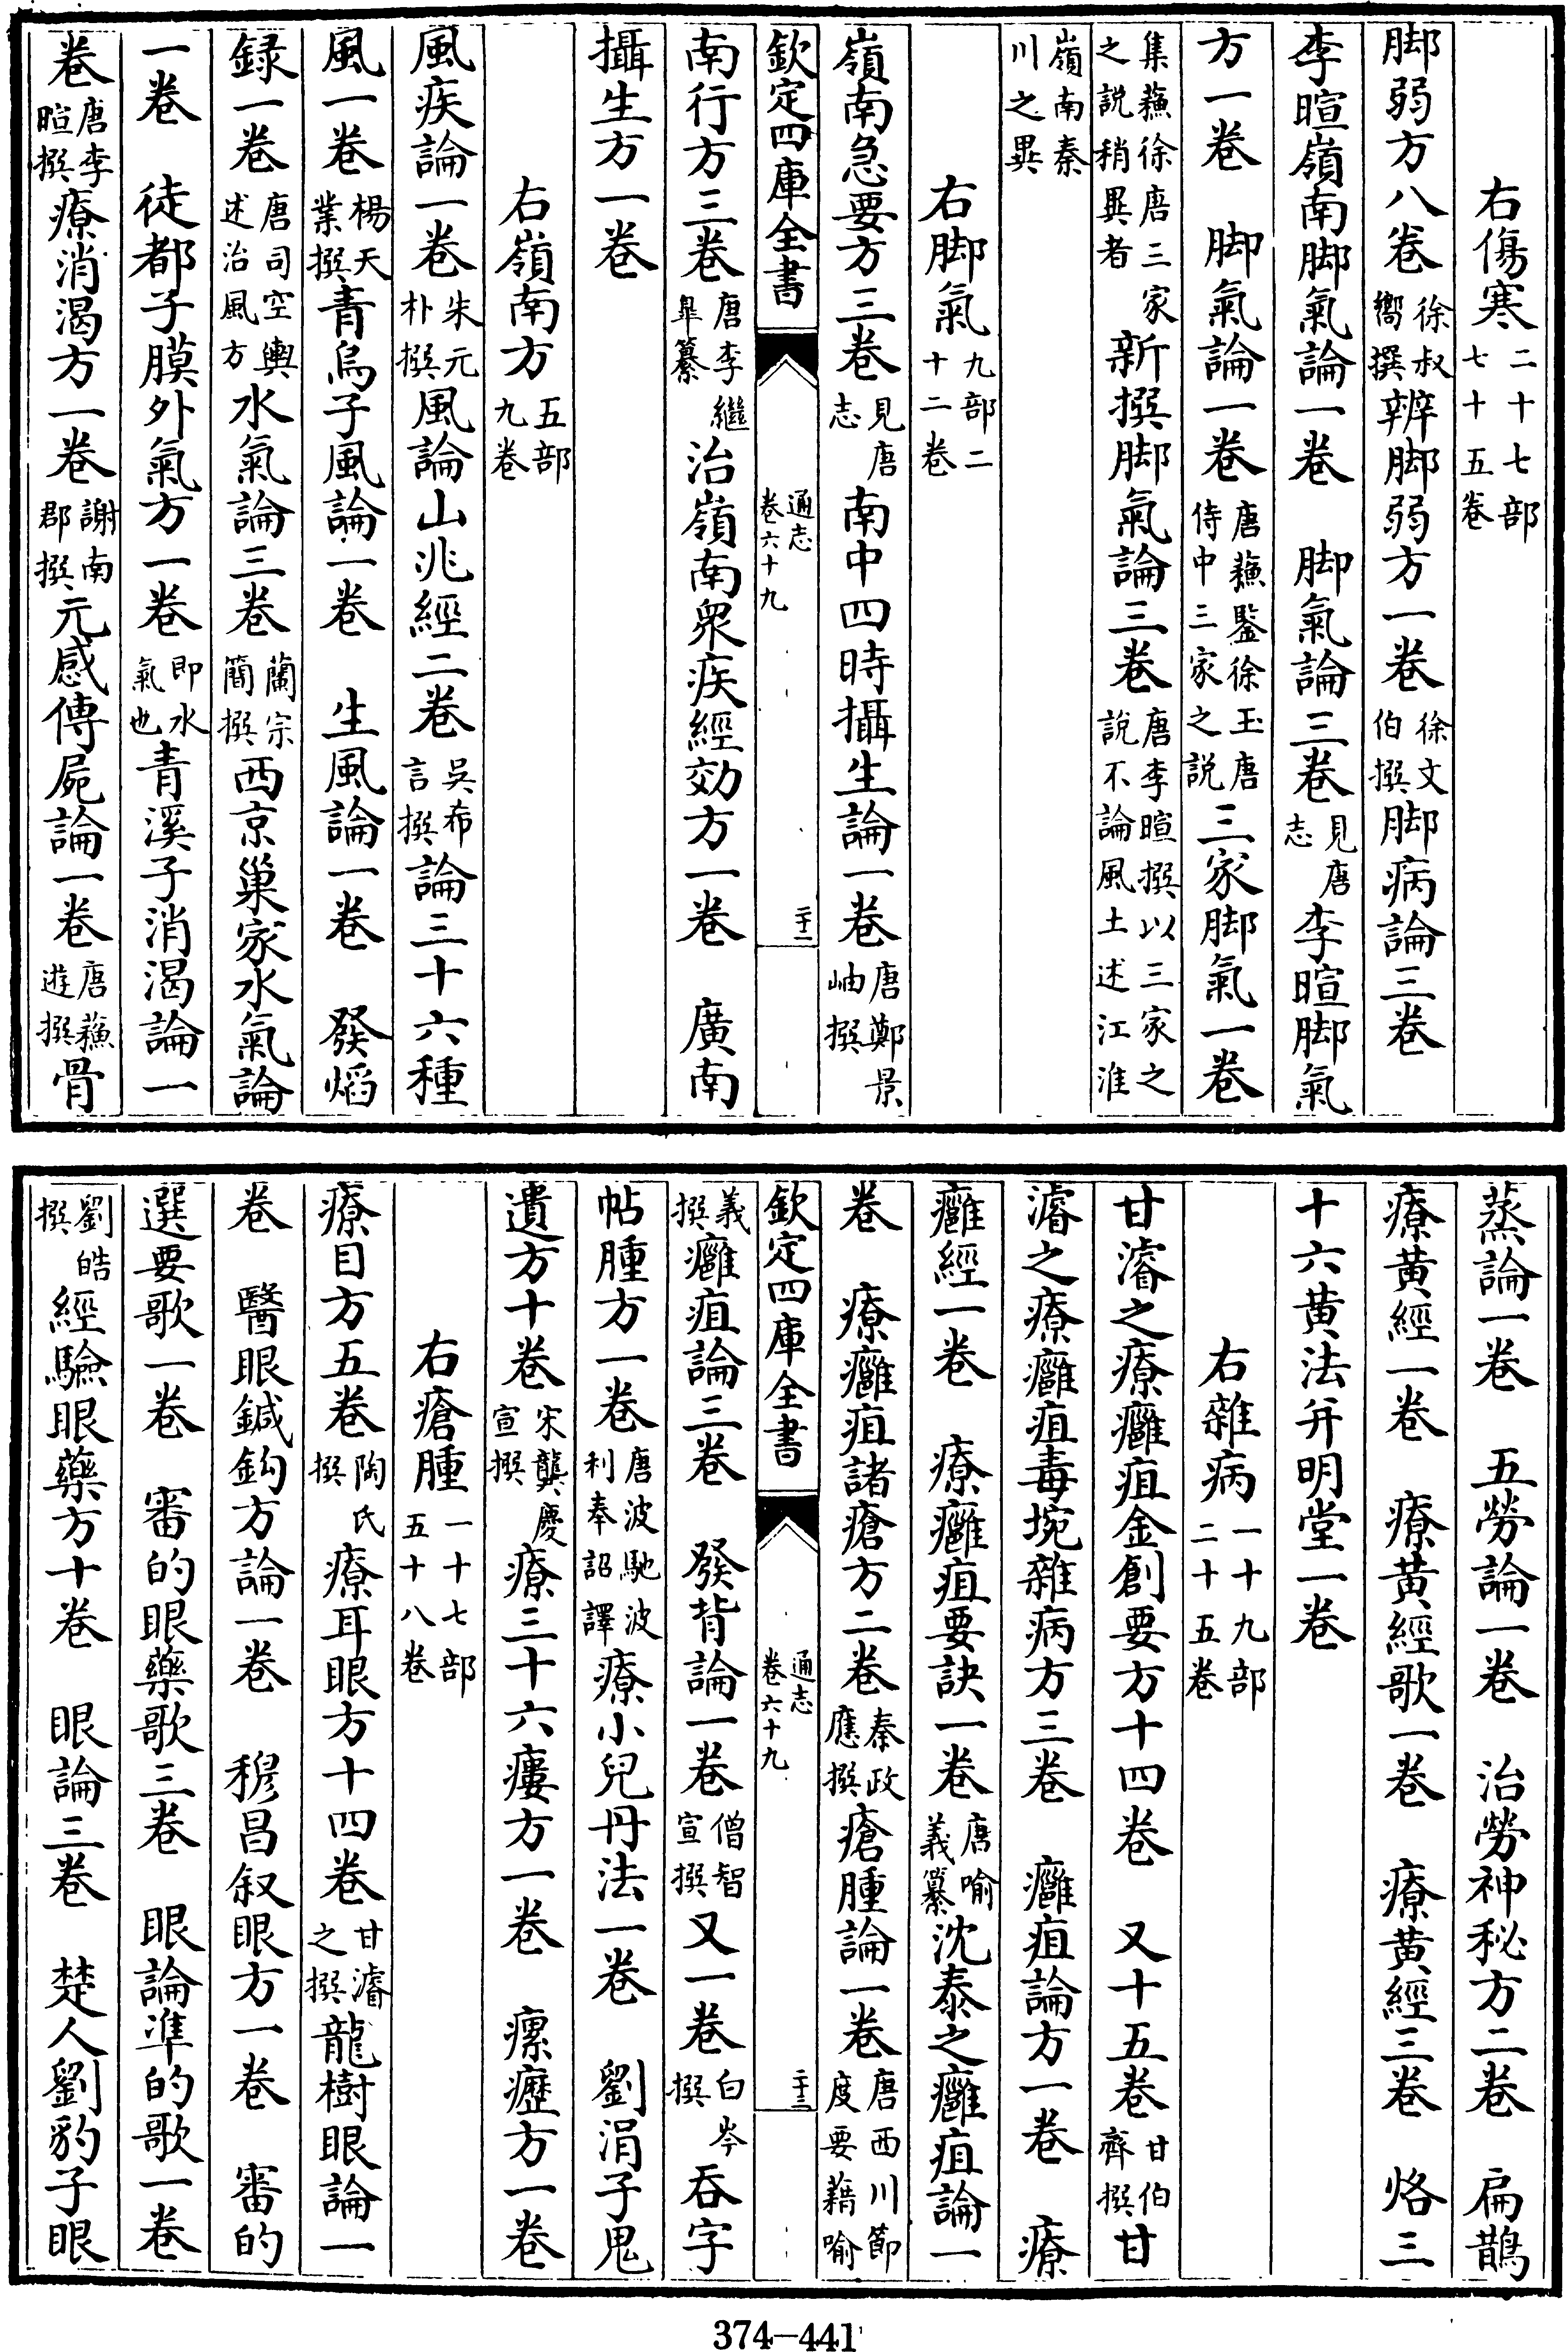 右傷寒二十七部七十五卷
脚弱方八卷徐叔嚮撰辨脚弱方一卷徐文伯撰脚病論三卷
李暄嶺南脚氣論一卷 脚氣論三卷見唐志李暄脚氣
方一卷 脚氣論一卷唐蘓鑒徐玉唐侍中三家之説三家脚氣一卷
集蘓徐唐三家之說稍異者新撰脚氣論三卷唐李暄撰以三家之說不論風土述江淮
嶺南秦川之異
右脚氣九部二十二卷
嶺南急要方三卷見唐志南中四時攝生論一卷唐鄭景岫撰
欽定四庫全書 通志卷六十九 二十二
南行方三卷唐李繼臯纂治嶺南衆疾經効方一卷 廣南
攝生方一卷
右嶺南方五部九卷
風疾論一卷朱元朴撰風論山兆經二卷吳布言撰論三十六種
風一卷楊天業撰青烏子風論一卷 生風論一卷 發焰
録一卷唐司空輿述治風方水氣論三卷蘭宗簡撰西京巢家水氣論
一卷 徒都子膜外氣方一卷即水氣也青溪子消渴論一
卷唐李暄撰療消渴方一卷謝南郡撰元感傳屍論一卷唐蘓遊撰骨
蒸論一卷 五勞論一卷 治勞神秘方二卷 扁鵲
療黃經一卷 療黃經歌一卷 療黃經三卷 烙三
十六黃法幷明堂一卷
右雜病一十九部二十五卷
甘濬之療癰疽金創要方十四卷 又十五卷甘伯齊撰甘
濬之療癰疽毒埦雜病方三卷 癰疽論方一卷 療
癰經一卷 療癰疽要訣一卷唐喻義纂沈泰之癰疽論一
卷 療癰疽諸瘡方二卷秦政應撰瘡腫論一卷唐西川節度要藉喻
欽定四庫全書 通志卷六十九 二十三
義撰癰疽論三卷 發背論一卷僧智宣撰又一卷白岑撰吞字
帖腫方一卷唐波馳波利奉詔譯療小兒丹法一卷 劉涓子鬼
遺方十卷宋龔慶宣撰療三十六瘻方一卷 瘰癧方一卷
右瘡腫一十七部五十八卷
療目方五卷陶氏撰療耳眼方十四卷甘濬之撰龍樹眼論一
卷 醫眼鍼鉤方論一卷 穆昌叙眼方一卷 審的
選要歌一卷 審的眼藥歌三卷 眼論準的歌一卷
劉皓撰經驗眼藥方十卷 眼論三卷 楚人劉豹子眼
374-441